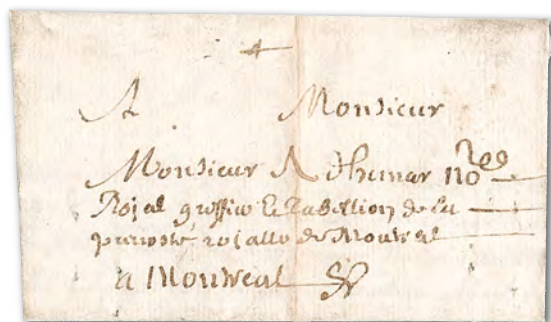 A Monsieur
Monsieur Adhemar no^re
Rojal greffier et Tabellion de La
prevosté rojalle de Monreal
a Monreal